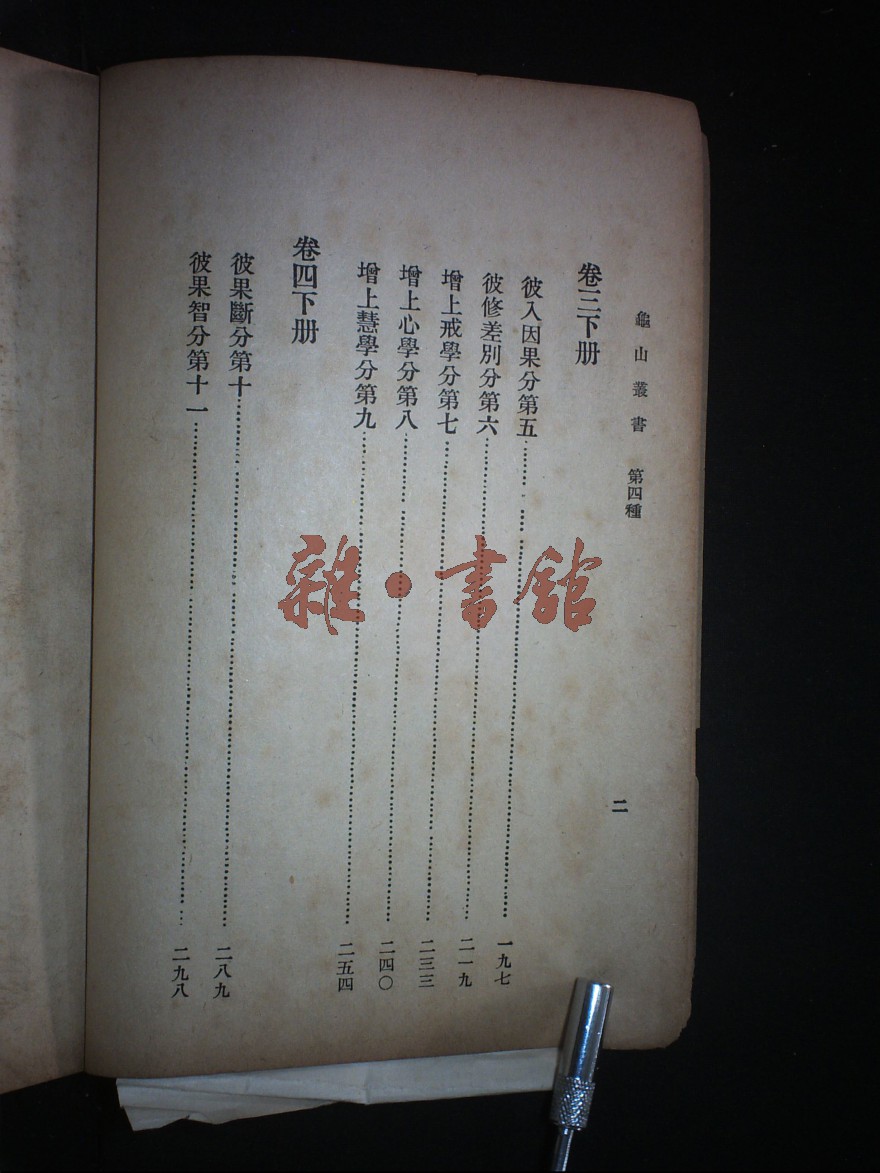 龜山叢書 第四種
二
卷三下册
彼入因果分第五 一九七
彼修差別分第六 二一九
增上戒學分第七 二三三
增上心學分第八 二四〇
增上慧學分第九 二五四
卷四下册
彼果斷分第十 二八九
彼果智分第十一 二九八
雜·書館